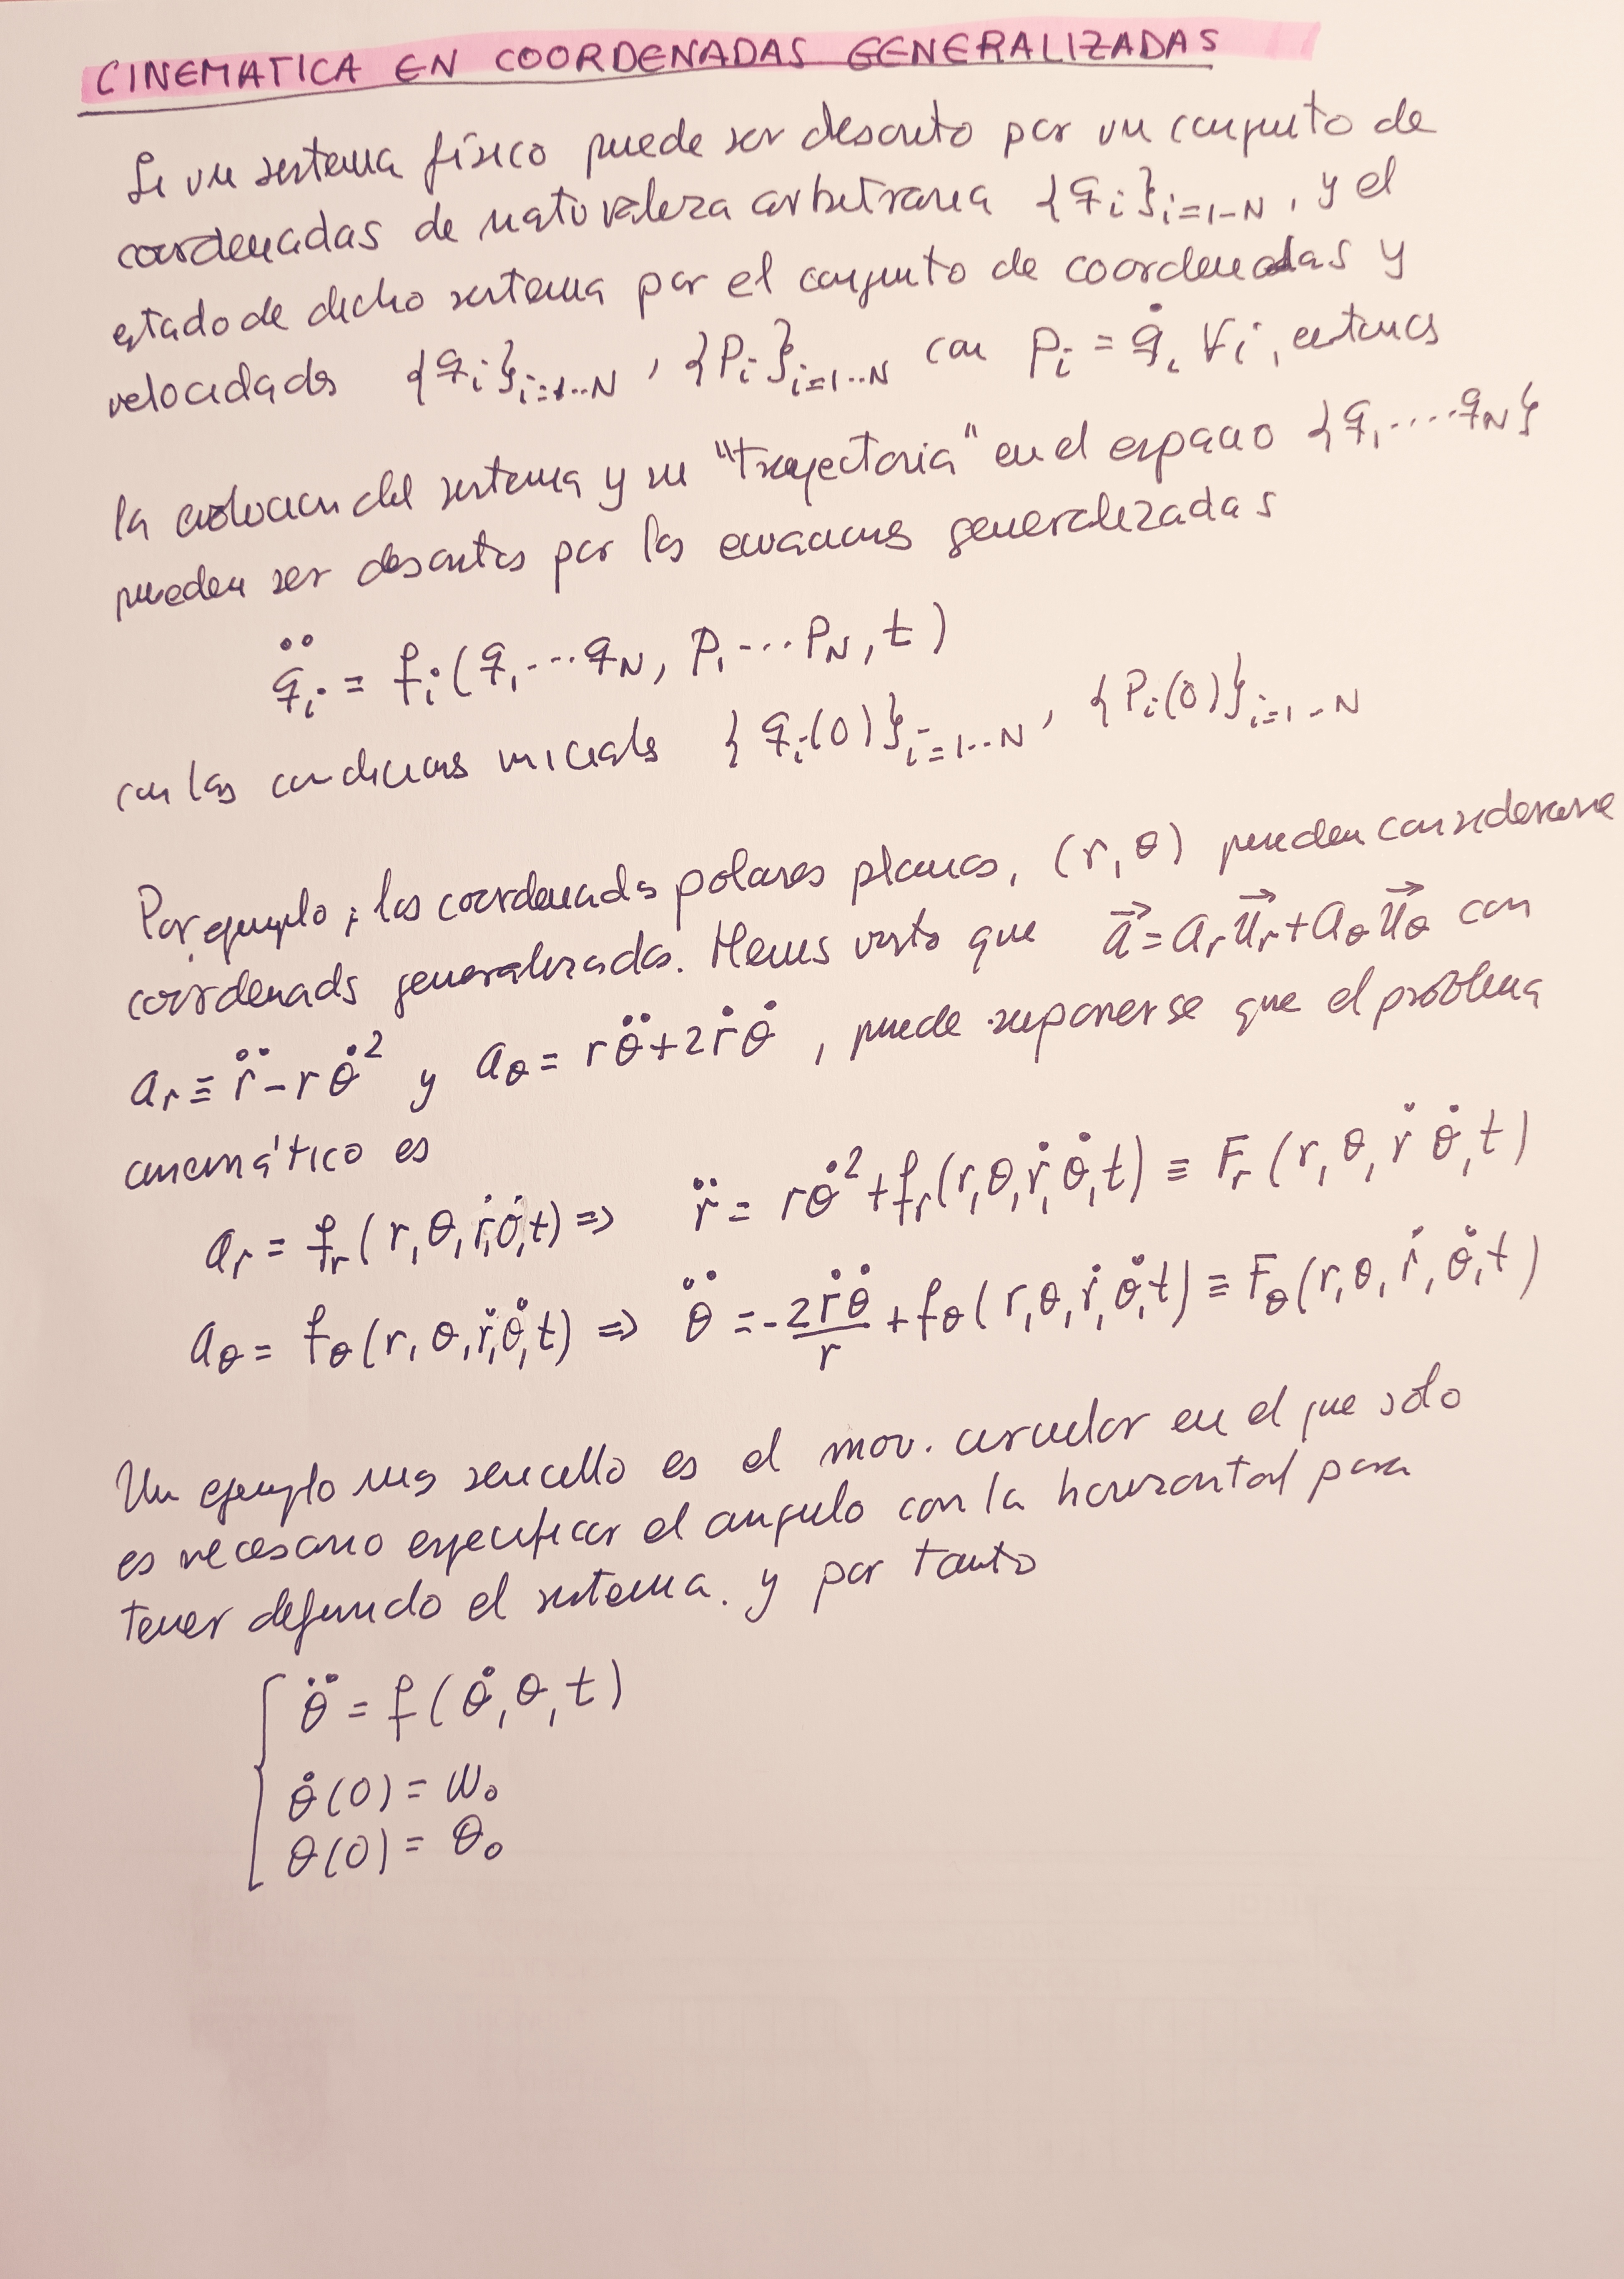 CINEMATICA EN COORDENADAS GENERALIZADAS
Si un sistema físico puede ser descrito por un conjunto de
coordenadas de naturaleza arbitraria {qi}i=1-N, y el
estado de dicho sistema por el conjunto de coordenadas y
velocidades {qi}i=1...N, {Pi}i=1...N con Pi = q̇i ∀i, entonces
la evolucion del sistema y su "trayectoria" en el espacio {q1....qN}
pueden ser descritas por las ecuaciones generalizadas
q̈i = fi(q1...qN, P1...PN, t)
con las condiciones iniciales {qi(0)}i=1...N, {Pi(0)}i=1..N
Por ejemplo, las coordenadas polares planas, (r, θ) pueden considerarse
coordenadas generalizadas. Hemos visto que a⃗ = ar u⃗r + aθ u⃗θ con
ar ≡ r̈ - rθ̇² y aθ = rθ̈ + 2ṙθ̇, puede suponerse que el problema
cinemático es
ar = fr(r, θ, ṙ, θ̇, t) => r̈ = rθ̇² + fr(r, θ, ṙ, θ̇, t) ≡ Fr(r, θ, ṙ θ̇, t)
aθ = fθ(r, θ, ṙ, θ̇, t) => θ̈ = -2ṙθ̇/r + fθ(r, θ, ṙ, θ̇, t) ≡ Fθ(r, θ, ṙ, θ̇, t)
Un ejemplo mas sencillo es el mov. circular en el que sólo
es necesario especificar el angulo con la horizontal para
tener definido el sistema. y por tanto
θ̈ = f(θ̇, θ, t)
θ̇(0) = ω0
θ(0) = θ0